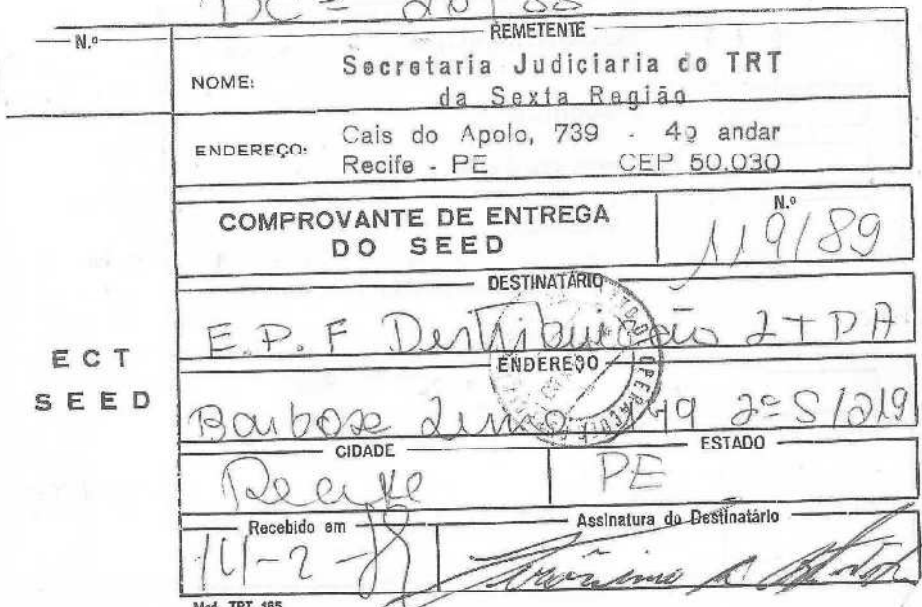 DC =
N.º
REMETENTE
NOME: Secretaria Judiciaria do TRT
da Sexta Região
ENDEREÇO: Cais do Apolo, 739 - 4º andar
Recife - PE CEP 50.030
COMPROVANTE DE ENTREGA
DO SEED
N.º
119/89
DESTINATÁRIO
E.P.F Destribuição LTDA
ENDEREÇO
Barbosa Lima 149 2º S/219
ECT
SEED
CIDADE
Recife
ESTADO
PE
Recebido em
14-2-89
Assinatura do Destinatário
Mod. TRT 165